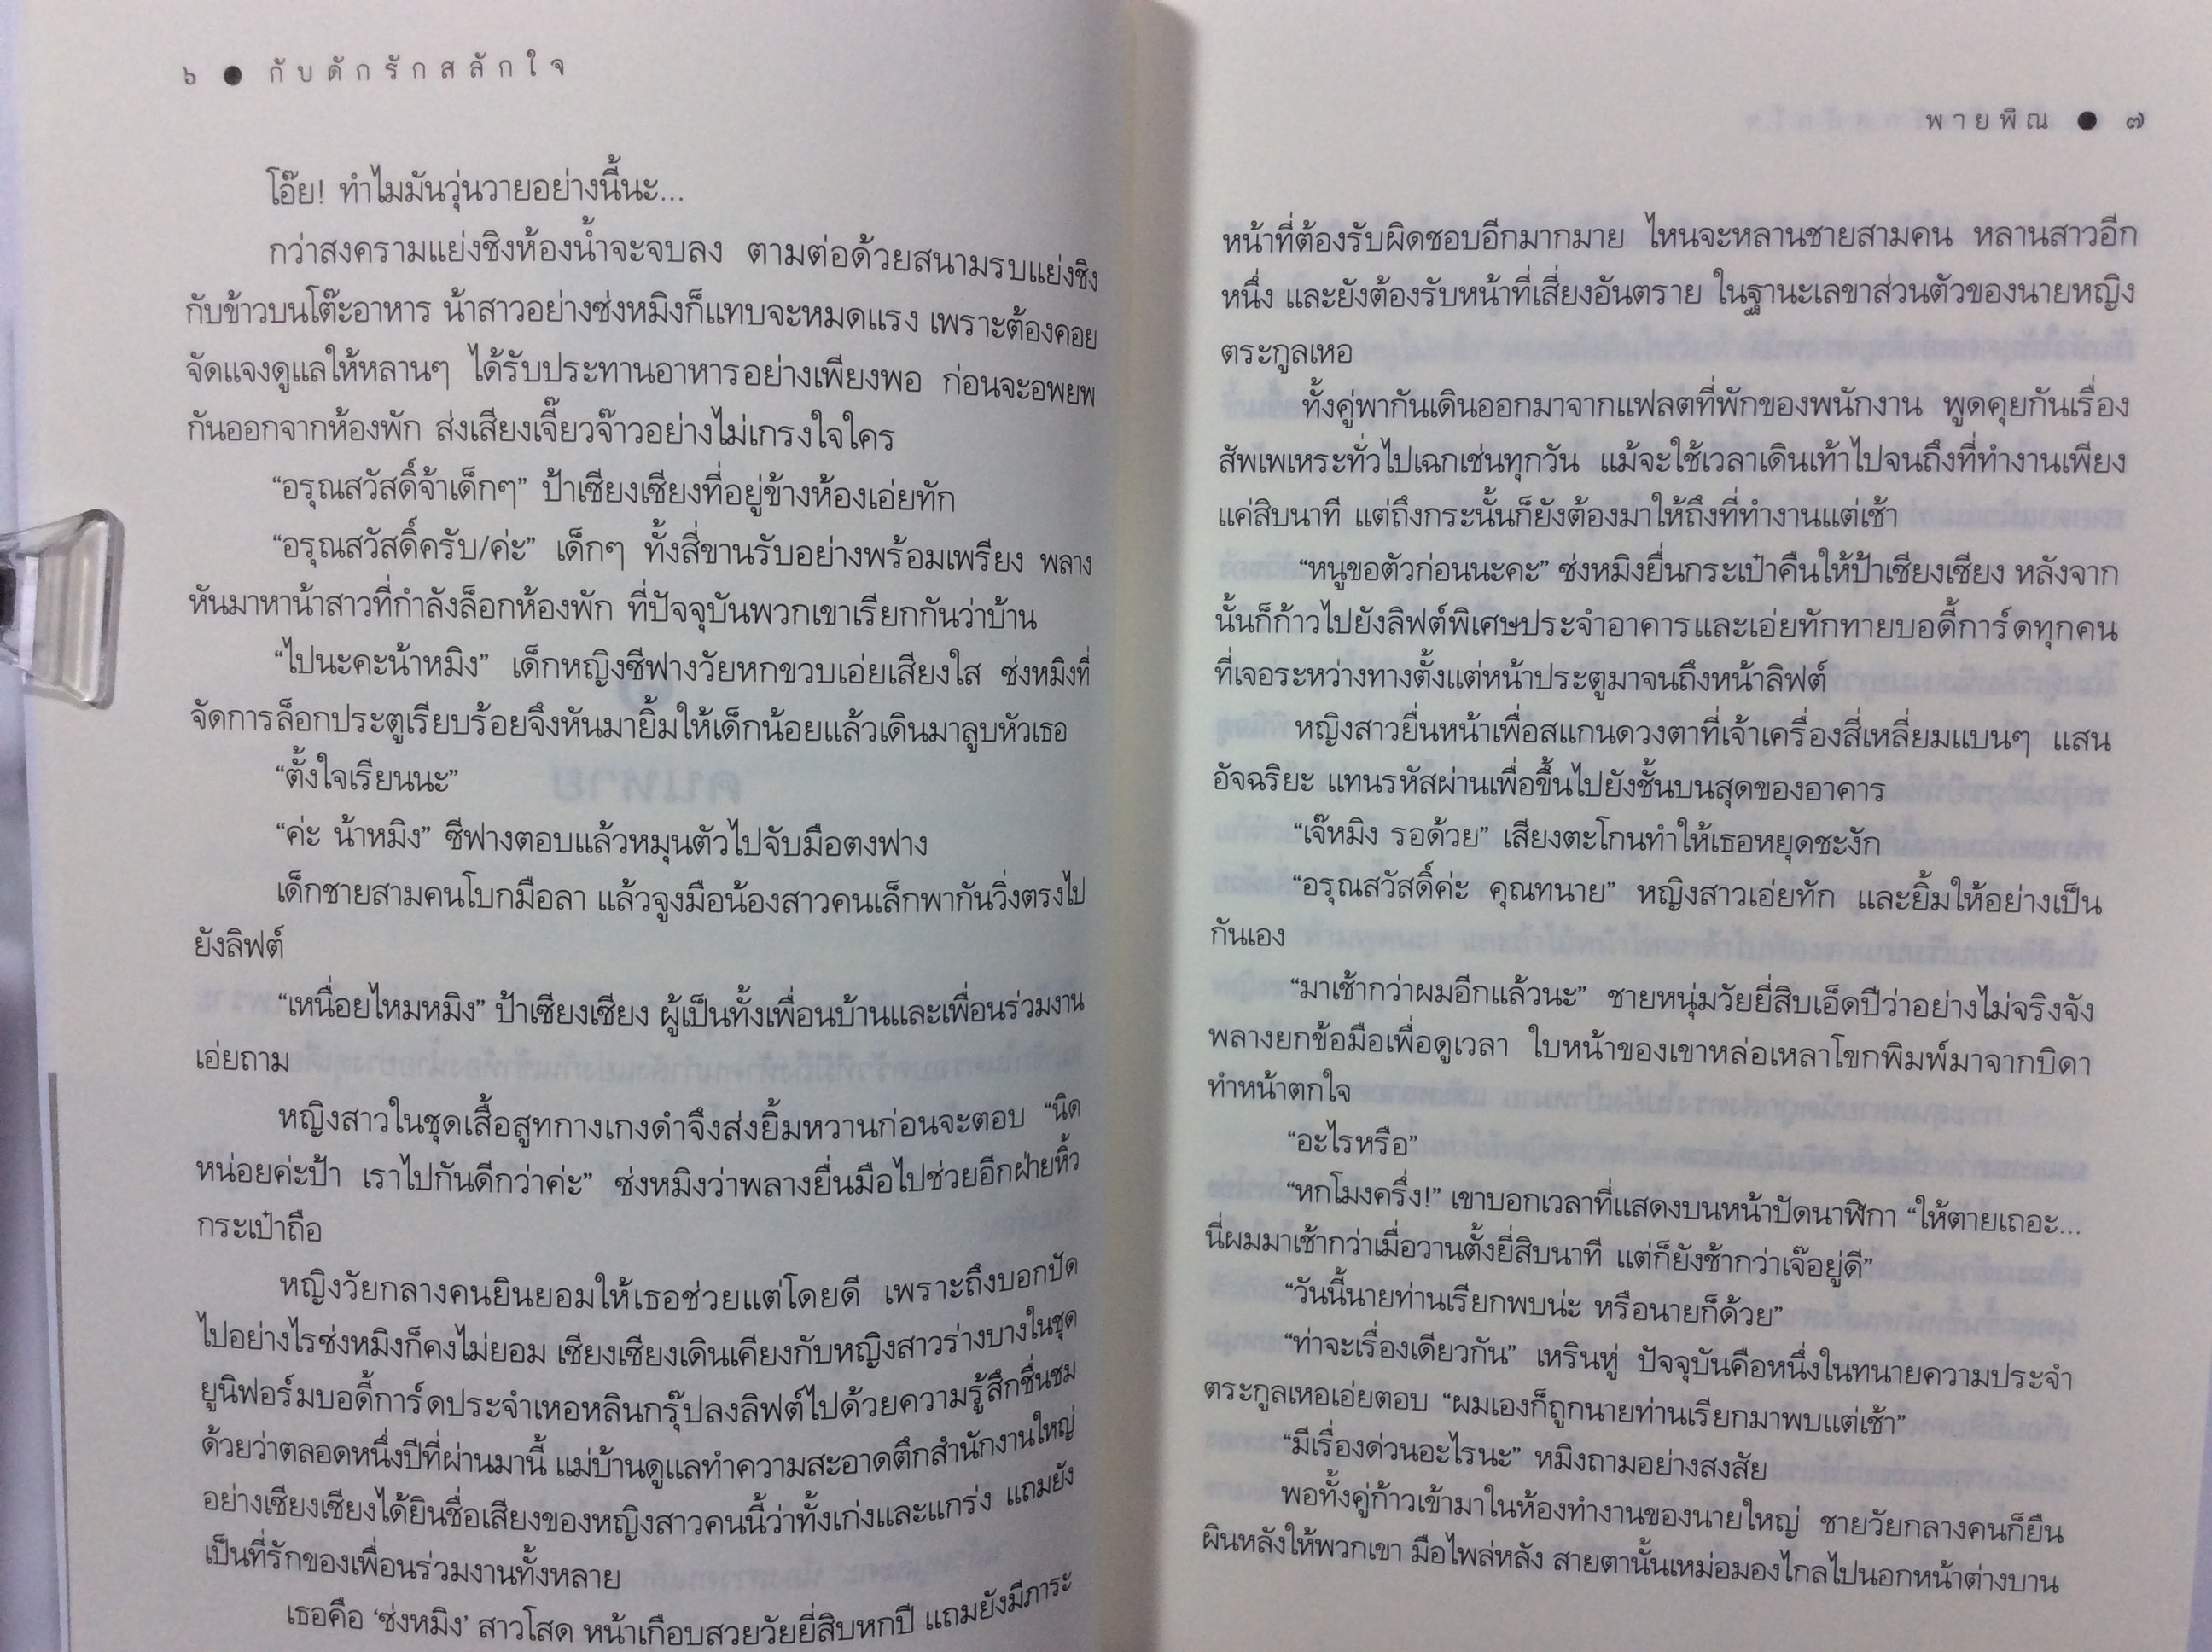 ๖ ● กับดักรักสลักใจ
โอ๊ย! ทำไมมันวุ่นวายอย่างนี้นะ...
กว่าสงครามแย่งชิงห้องน้ำจะจบลง ตามต่อด้วยสนามรบแย่งชิง
กับข้าวบนโต๊ะอาหาร น้าสาวอย่างซ่งหมิงก็แทบจะหมดแรง เพราะต้องคอย
จัดแจงดูแลให้หลานๆ ได้รับประทานอาหารอย่างเพียงพอ ก่อนจะอพยพ
กันออกจากห้องพัก ส่งเสียงเจี๊ยวจ๊าวอย่างไม่เกรงใจใคร
“อรุณสวัสดิ์จ้าเด็กๆ” ป้าเซียงเซียงที่อยู่ข้างห้องเอ่ยทัก
“อรุณสวัสดิ์ครับ/ค่ะ” เด็กๆ ทั้งสี่ขานรับอย่างพร้อมเพรียง พลาง
หันมาหาน้าสาวที่กำลังล็อกห้องพัก ที่ปัจจุบันพวกเขาเรียกกันว่าบ้าน
“ไปนะคะน้าหมิง” เด็กหญิงซีฟางวัยหกขวบเอ่ยเสียงใส ซ่งหมิงที่
จัดการล็อกประตูเรียบร้อยจึงหันมายิ้มให้เด็กน้อยแล้วเดินมาลูบหัวเธอ
“ตั้งใจเรียนนะ”
“ค่ะ น้าหมิง” ซีฟางตอบแล้วหมุนตัวไปจับมือตงฟาง
เด็กชายสามคนโบกมือลา แล้วจูงมือน้องสาวคนเล็กพากันวิ่งตรงไป
ยังลิฟต์
“เหนื่อยไหมหมิง” ป้าเซียงเซียง ผู้เป็นทั้งเพื่อนบ้านและเพื่อนร่วมงาน
เอ่ยถาม
หญิงสาวในชุดเสื้อสูทกางเกงดำจึงส่งยิ้มหวานก่อนจะตอบ “นิด
หน่อยค่ะป้า เราไปกันดีกว่าค่ะ” ซ่งหมิงว่าพลางยื่นมือไปช่วยอีกฝ่ายหิ้ว
กระเป๋าถือ
หญิงวัยกลางคนยินยอมให้เธอช่วยแต่โดยดี เพราะถึงบอกปัด
ไปอย่างไรซ่งหมิงก็คงไม่ยอม เซียงเซียงเดินเคียงกับหญิงสาวร่างบางในชุด
ยูนิฟอร์มบอดี้การ์ดประจำเหอหลินกรุ๊ปลงลิฟต์ไปด้วยความรู้สึกชื่นชม
ด้วยว่าตลอดหนึ่งปีที่ผ่านมานี้ แม่บ้านดูแลทำความสะอาดตึกสำนักงานใหญ่
อย่างเซียงเซียงได้ยินชื่อเสียงของหญิงสาวคนนี้ว่าทั้งเก่งและแกร่ง แถมยัง
เป็นที่รักของเพื่อนร่วมงานทั้งหลาย
เธอคือ ‘ซ่งหมิง’ สาวโสด หน้าเกือบสวยวัยยี่สิบหกปี แถมยังมีภาระ
พายพิณ ● ๗
หน้าที่ต้องรับผิดชอบอีกมากมาย ไหนจะหลานชายสามคน หลานสาวอีก
หนึ่ง และยังต้องรับหน้าที่เสี่ยงอันตราย ในฐานะเลขาส่วนตัวของนายหญิง
ตระกูลเหอ
ทั้งคู่พากันเดินออกมาจากแฟลตที่พักของพนักงาน พูดคุยกันเรื่อง
สัพเพเหระทั่วไปเฉกเช่นทุกวัน แม้จะใช้เวลาเดินเท้าไปจนถึงที่ทำงานเพียง
แค่สิบนาที แต่ถึงกระนั้นก็ยังต้องมาให้ถึงที่ทำงานแต่เช้า
“หนูขอตัวก่อนนะคะ” ซ่งหมิงยื่นกระเป๋าคืนให้ป้าเซียงเซียง หลังจาก
นั้นก็ก้าวไปยังลิฟต์พิเศษประจำอาคารและเอ่ยทักทายบอดี้การ์ดทุกคน
ที่เจอระหว่างทางตั้งแต่หน้าประตูมาจนถึงหน้าลิฟต์
หญิงสาวยื่นหน้าเพื่อสแกนดวงตาที่เจ้าเครื่องสี่เหลี่ยมแบนๆ แสน
อัจฉริยะ แทนรหัสผ่านเพื่อขึ้นไปยังชั้นบนสุดของอาคาร
“เจ๊หมิง รอด้วย” เสียงตะโกนทำให้เธอหยุดชะงัก
“อรุณสวัสดิ์ค่ะ คุณทนาย” หญิงสาวเอ่ยทัก และยิ้มให้อย่างเป็น
กันเอง
“มาเช้ากว่าผมอีกแล้วนะ” ชายหนุ่มวัยยี่สิบเอ็ดปีว่าอย่างไม่จริงจัง
พลางยกข้อมือเพื่อดูเวลา ใบหน้าของเขาหล่อเหลาโขกพิมพ์มาจากบิดา
ทำหน้าตกใจ
“อะไรหรือ”
“หกโมงครึ่ง!” เขาบอกเวลาที่แสดงบนหน้าปัดนาฬิกา “ให้ตายเถอะ...
นี่ผมมาเช้ากว่าเมื่อวานตั้งยี่สิบนาที แต่ก็ยังช้ากว่าเจ๊อยู่ดี”
“วันนี้นายท่านเรียกพบน่ะ หรือนายก็ด้วย”
“ท่าจะเรื่องเดียวกัน” เหรินหู่ ปัจจุบันคือหนึ่งในทนายความประจำ
ตระกูลเหอเอ่ยตอบ “ผมเองก็ถูกนายท่านเรียกมาพบแต่เช้า”
“มีเรื่องด่วนอะไรนะ” หมิงถามอย่างสงสัย
พอทั้งคู่ก้าวเข้ามาในห้องทำงานของนายใหญ่ ชายวัยกลางคนก็ยืน
ผินหลังให้พวกเขา มือไพล่หลัง สายตานั้นเหม่อมองไกลไปนอกหน้าต่างบาน